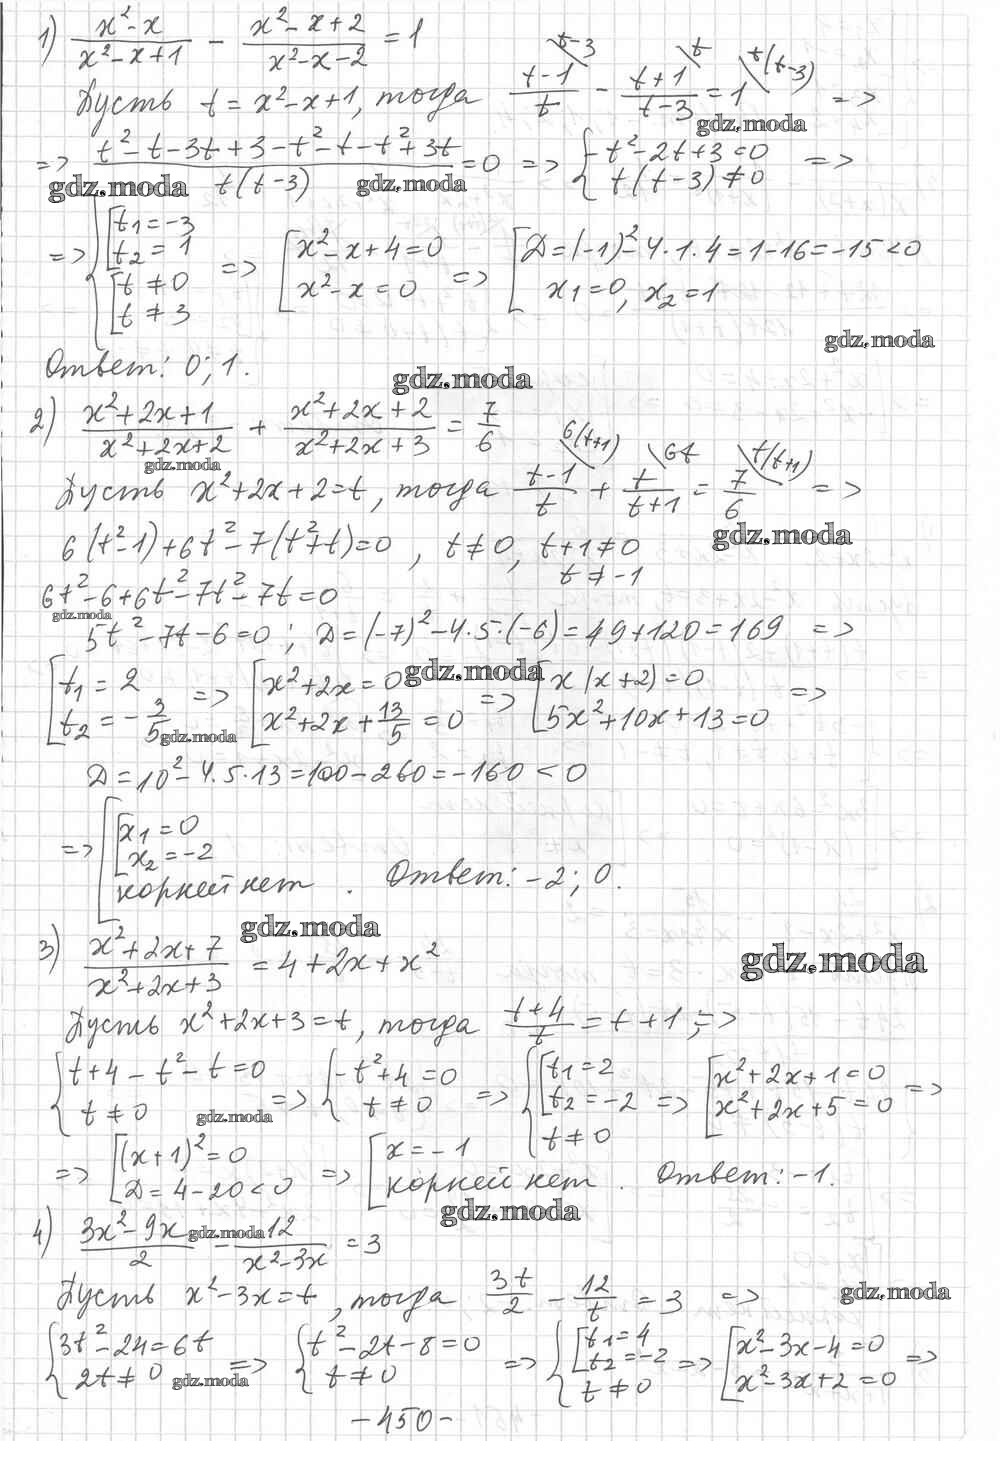 1) (x²-x)/(x²-x+1) - (x²-x+2)/(x²-x-2) = 1
Пусть t = x²-x+1, тогда (t-1)/t - (t+1)/(t-3) = 1 =>
t-3 t t(t-3)
gdz.moda
=> (t²-t-3t+3-t²-t-t²+3t)/(t(t-3)) = 0 => { -t²-2t+3=0 =>
t(t-3)≠0
gdz.moda gdz.moda
=> { [ t₁=-3
t₂=1
[ t≠0
t≠3
=> [ x²-x+4=0
x²-x=0
=> [ D=(-1)²-4·1·4=1-16=-15<0
x₁=0, x₂=1
gdz.moda
Ответ: 0; 1.
gdz.moda
2) (x²+2x+1)/(x²+2x+2) + (x²+2x+2)/(x²+2x+3) = 7/6
gdz.moda
6(t+1) 6t t(t+1)
Пусть x²+2x+2=t, тогда (t-1)/t + t/(t+1) = 7/6 =>
gdz.moda
6(t²-1)+6t²-7(t²+t)=0, t≠0, t+1≠0
t≠-1
6t²-6+6t²-7t²-7t=0
gdz.moda
5t²-7t-6=0; D=(-7)²-4·5·(-6)=49+120=169 =>
gdz.moda
[ t₁=2
t₂=-3/5
=> [ x²+2x=0
x²+2x+13/5=0
=> [ x(x+2)=0
5x²+10x+13=0 =>
gdz.moda
D=10²-4·5·13=100-260=-160<0
=> [ [ x₁=0
x₂=-2
корней нет. Ответ: -2; 0.
gdz.moda
3) (x²+2x+7)/(x²+2x+3) = 4+2x+x²
gdz.moda
Пусть x²+2x+3=t, тогда (t+4)/t = t+1; =>
{ t+4-t²-t=0
t≠0
=> { -t²+4=0
t≠0
=> { [ t₁=2
t₂=-2
t≠0
=> [ x²+2x+1=0
x²+2x+5=0 =>
gdz.moda
=> [ (x+1)²=0
D=4-20<0
=> [ x=-1
корней нет. Ответ: -1.
gdz.moda
4) (3x²-9x)/2 - 12/(x²-3x) = 3
gdz.moda
Пусть x²-3x=t, тогда 3t/2 - 12/t = 3 =>
gdz.moda
{ 3t²-24=6t
2t≠0
=> { t²-2t-8=0
t≠0
=> { [ t₁=4
t₂=-2
t≠0
=> [ x²-3x-4=0
x²-3x+2=0 =>
gdz.moda
-450-